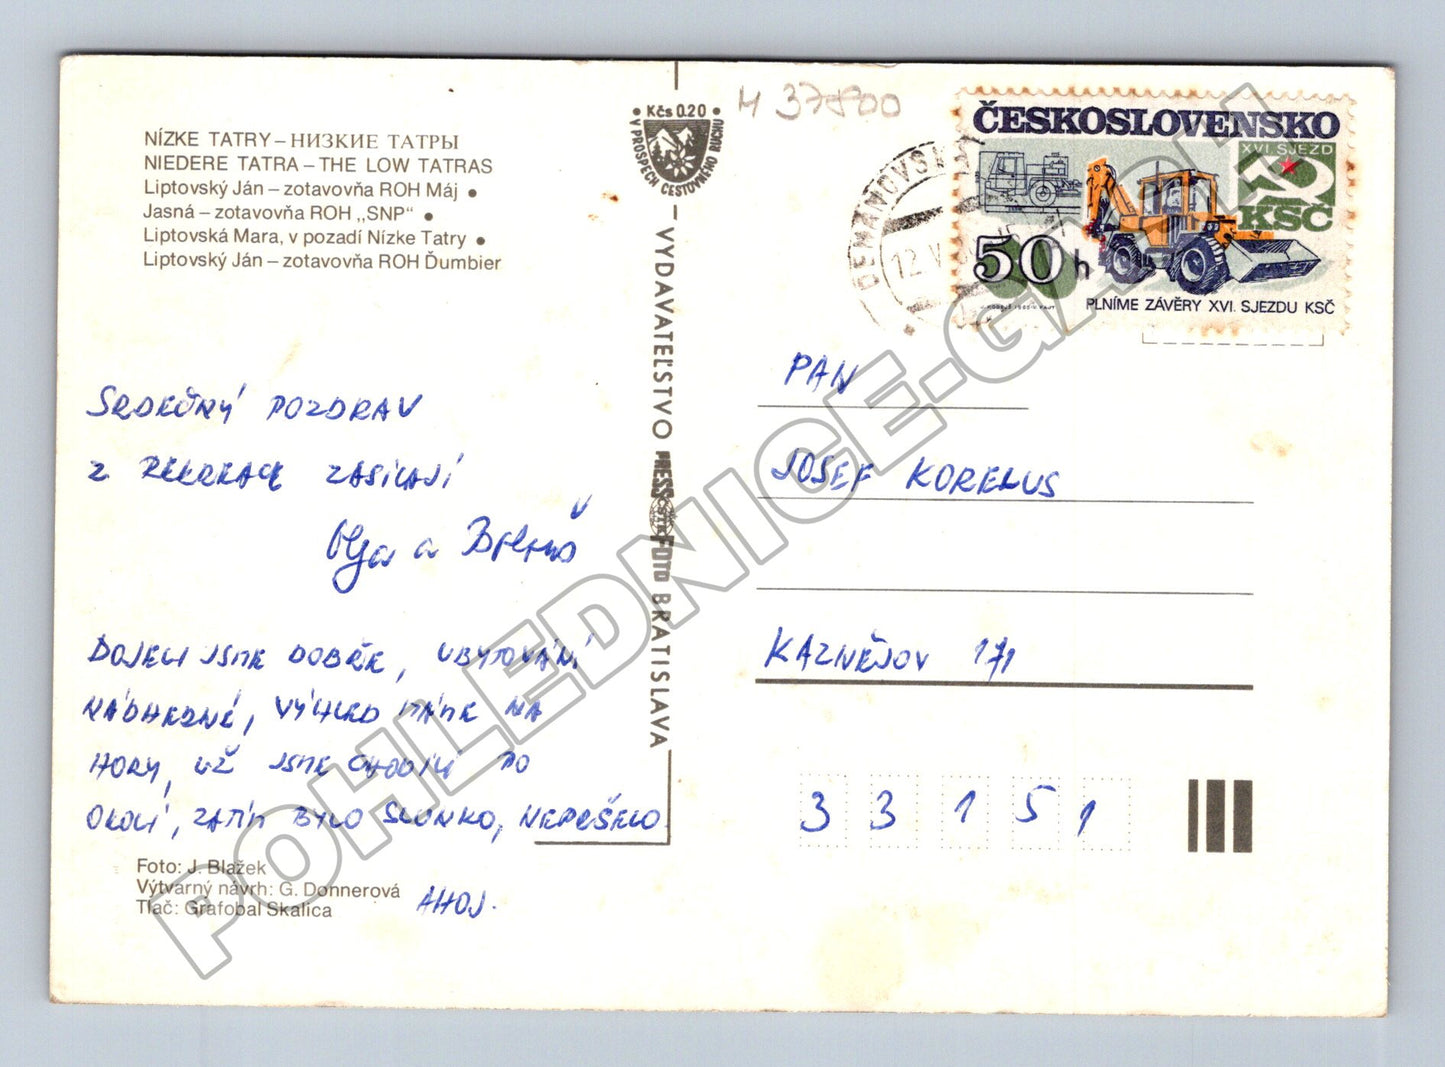 NÍZKE TATRY – НИЗКИЕ ТАТРЫ
NIEDERE TATRA – THE LOW TATRAS
Liptovský Ján – zotavovňa ROH Máj •
Jasná – zotavovňa ROH „SNP" •
Liptovská Mara, v pozadí Nízke Tatry •
Liptovský Ján – zotavovňa ROH Ďumbier
SRDEČNÝ POZDRAV
Z REKREACE ZASÍLAJÍ
Olga a
DOJELI JSME DOBŘE, UBYTOVÁNÍ
NÁDHERNÉ, VÝHLED MÁME NA
HORY, UŽ JSME CHODILI PO
OKOLÍ, ZATÍM BYLO SLUNKO, NEPRŠELO
AHOJ.
Foto: J. Blažek
Výtvarný návrh: G. Donnerová
Tlač: Grafobal Skalica
• Kčs 0.20 •
V PROSPECH CESTOVNÉHO RUCHU
VYDAVATEĽSTVO PRESSFOTO BRATISLAVA
ČSTK
H 37800
12. V
ČESKOSLOVENSKO
XVI. SJEZD
KSČ
50 h
PLNÍME ZÁVĚRY XVI. SJEZDU KSČ
PAN
JOSEF KORELUS
KAZNĚJOV 171
33151
POHLEDNICE-GALCH